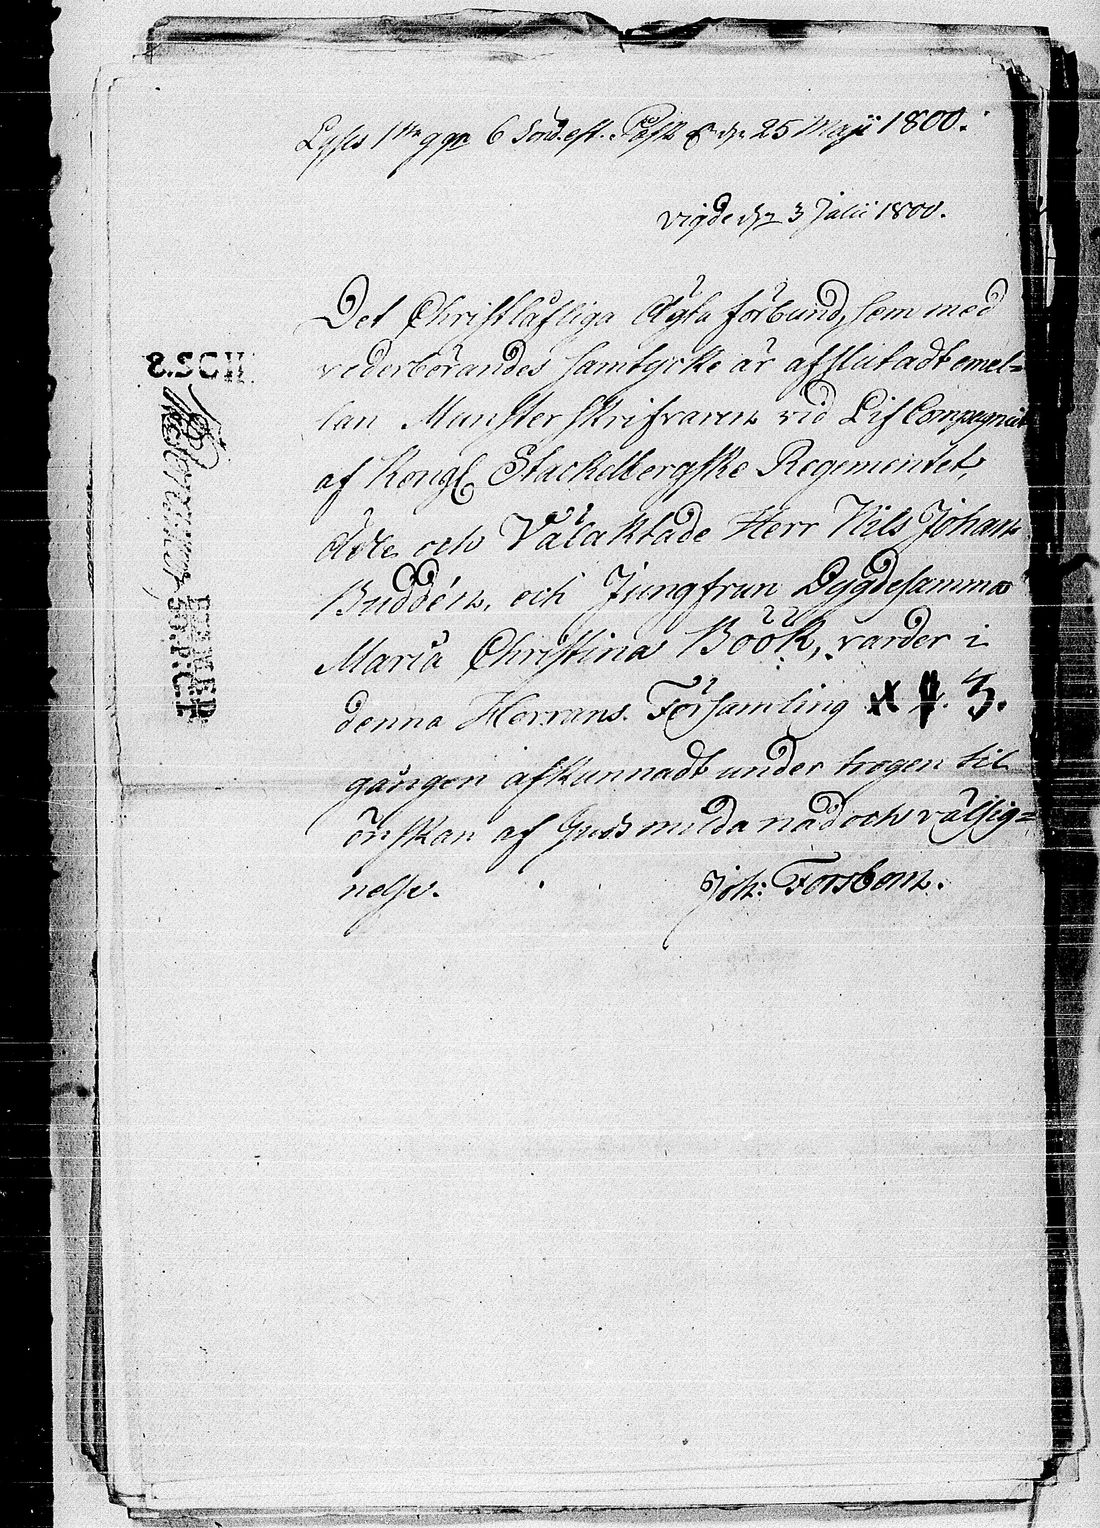 Lystes 1sta ggn 6 Sönd. eft. Påsk d. 25 Maji 1800.
vigde d. 3 Julii 1800.
Det Christlofliga Ägta förbund, som med
vederbörandes samtycke är afslutadt emel=
lan Munsterskrifvaren vid Lif Compagniet
af Kongl Stackelbergske Regementet,
Ädle och Välaktade Herr Nils Johan
Buddén, och Jungfrun Dygdesamma
Maria Christina Böök, varder i
denna Herrans Församling 3.
gången afkunnadt under trogen til
önskan af Guds milda nåd och välsig=
nelse.
Joh: Forsbom.